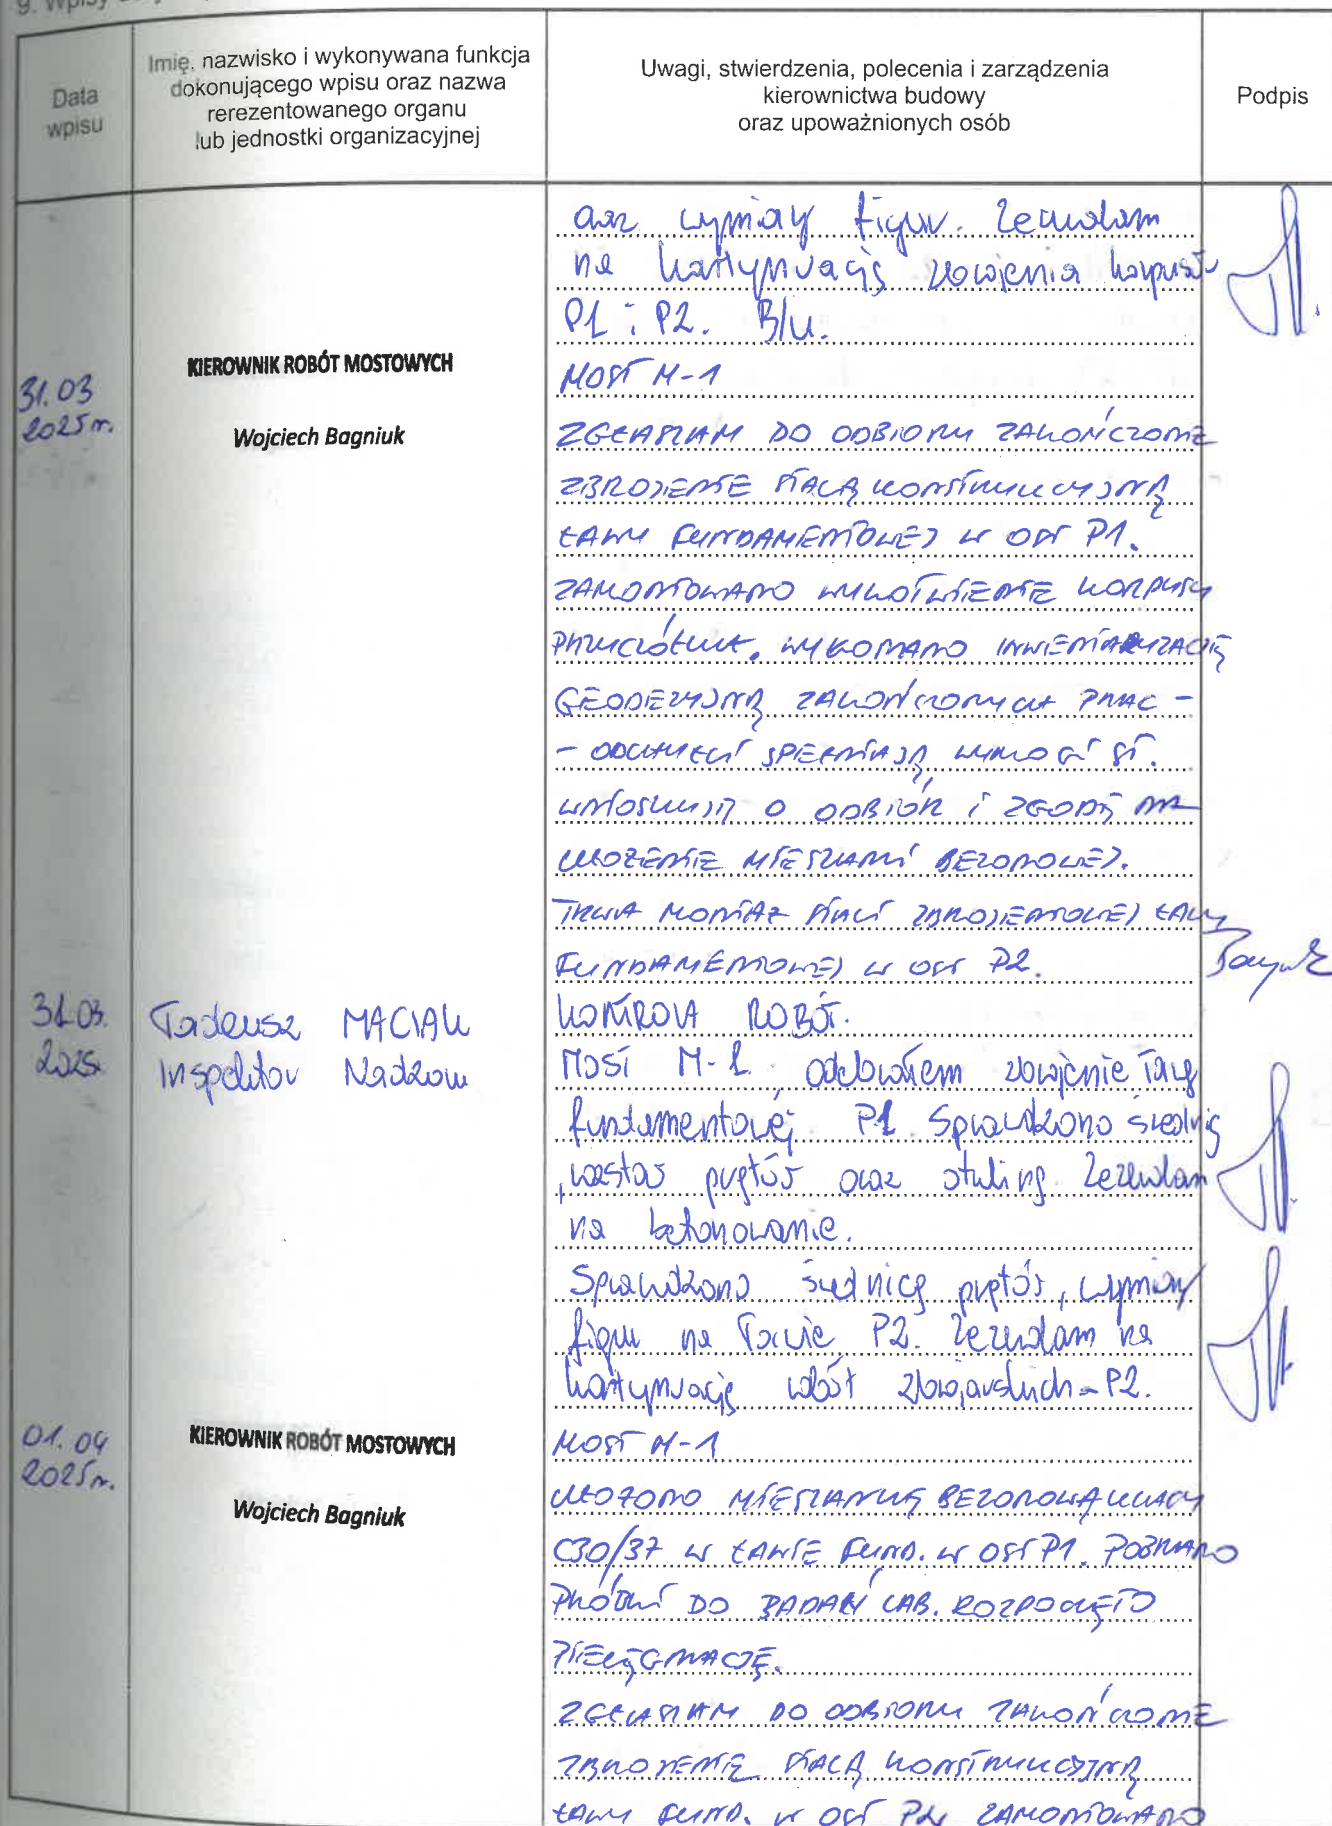 9. Wpisy
Data wpisu
Imię, nazwisko i wykonywana funkcja
dokonującego wpisu oraz nazwa
rerezentowanego organu
lub jednostki organizacyjnej
Uwagi, stwierdzenia, polecenia i zarządzenia
kierownictwa budowy
oraz upoważnionych osób
Podpis
oraz wymiary figur. Zezwalam
na kontynuację zbrojenia korpusów
P1 i P2. B/u.
31.03
2025 r.
KIEROWNIK ROBÓT MOSTOWYCH
Wojciech Bagniuk
MOST M-1
ZGŁASZAM DO ODBIORU ZAKOŃCZONE
ZBROJENIE STALĄ KONSTRUKCYJNĄ
ŁAWY FUNDAMENTOWEJ W OSI P1.
ZAMONTOWANO WYKOTWIENIE KORPUSU
PRZYCZÓŁKA. WYKONANO INWENTARYZACJĘ
GEODEZYJNĄ ZAKOŃCZONYCH PRAC -
- ODCHYŁKI SPEŁNIAJĄ WYMOGI ST.
WNIOSKUJĘ O ODBIÓR I ZGODĘ NA
UŁOŻENIE MIESZANKI BETONOWEJ.
TRWA MONTAŻ STALI ZBROJENIOWEJ ŁAWY
FUNDAMENTOWEJ W OSI P2.
31.03.
2025
Tadeusz MACIAK
Inspektor Nadzoru
KONTROLA ROBÓT.
MOST M-1. odebrałem zbrojenie ławy
fundamentowej P1. Sprawdzono średnię
, rozstaw prętów oraz otulinę. Zezwalam
na betonowanie.
Sprawdzono średnicę prętów, wymiary
figur na ławie P2. Zezwalam na
kontynuację robót zbrojarskich - P2.
01.04
2025 r.
KIEROWNIK ROBÓT MOSTOWYCH
Wojciech Bagniuk
MOST M-1
UŁOŻONO MIESZANKĘ BETONOWĄ KLASY
C30/37 W ŁAWIE FUND. W OSI P1. POBRANO
PRÓBKI DO BADAŃ LAB. ROZPOCZĘTO
PIELĘGNACJĘ.
ZGŁASZAM DO ODBIORU ZAKOŃCZONE
ZBROJENIE STALĄ KONSTRUKCYJNĄ
ŁAWY FUND. W OSI P2. ZAMONTOWANO